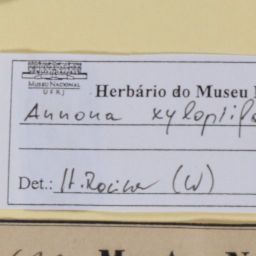 MUSEU NACIONAL
UFRJ
Herbário do Museu
Annona xylopif
Det.: H. Rainer (W)